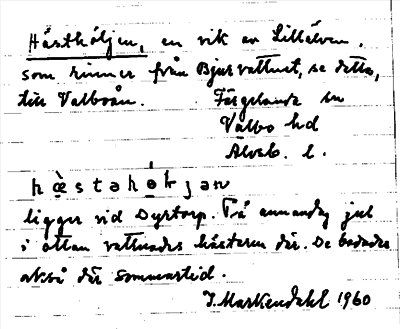 Hästhöljen, en vik av Lillälven,
som rinner från Bjursvattnet, se detta,
till Valboån. Färgelanda sn
Valbo hd
Älvsb. l.
hǜstahøljən
ligger vid Dyrtorp. På annandag jul
i ottan vattnades hästarna där. De badades
också där sommartid.
J. Markendahl 1960